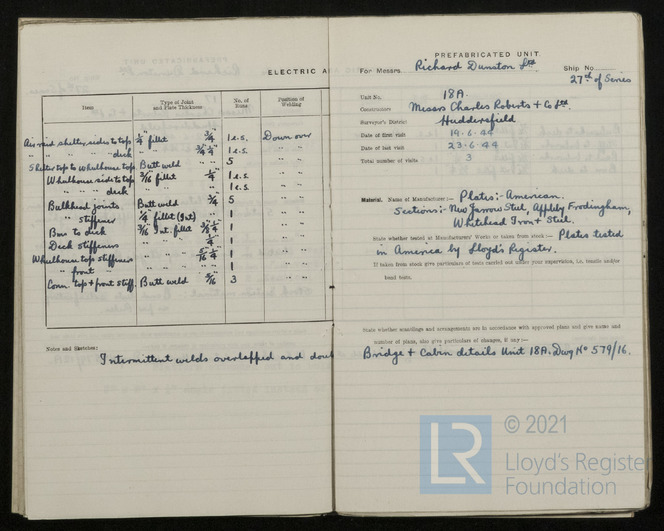 ELECTRIC A
Item
Type of Joint and Plate Thickness
No. of Runs
Position of Welding
Air raid shelter sides to top 1/4" fillet 3/4" 1 e.s. Down over
" " " " deck " " 3/4" 1/4" 1 e.s. " "
Shelter top to Wheelhouse top Butt weld " " 5 " "
Wheelhouse sides to top 3/16" fillet 1/4" 1 e.s. " "
" " " deck " " " 1 e.s. " "
Bulkhead joints Butt weld 3/4" 5 " "
" stiffener 1/4" fillet (Int) " 1 " "
to deck 3/16" Int. fillet 1 " "
Deck stiffeners " " 1 " "
Wheelhouse top stiffeners " " 5/16" 1/4" 1 " "
" front " " " " 1 " "
Conn. top + front stiff. Butt weld 5/16" 3 " "
Notes and Sketches:
Intermittent welds overlapped and doub
PREFABRICATED UNIT.
For Messrs Richard Dunston Ltd Ship No
27th of Series
Unit No. 18A.
Constructors Messrs Charles Roberts & Co Ltd.
Surveyor's District Huddersfield
Date of first visit 19.6.44
Date of last visit 23.6.44
Total number of visits 3
Material. Name of Manufacturer:— Plates:- American.
Sections:- New Jarrow Steel, Appleby Frodingham,
Whitehead Iron & Steel.
State whether tested at Manufacturers' Works or taken from stock:— Plates tested
in America by Lloyd's Register.
If taken from stock give particulars of tests carried out under your supervision, i.e. tensile and/or
bend tests.
State whether scantlings and arrangements are in accordance with approved plans and give name and
number of plans, also give particulars of changes, if any:—
Bridge & Cabin details Unit 18A. Dwg No 579/16.
LR
© 2021
Lloyd's Register
Foundation